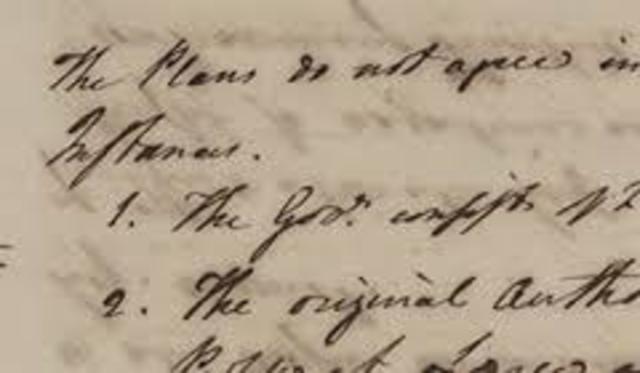 The Plans do not agree in
Instances.
1. The Gov.t consists of 2
2. The original Autho
Power at